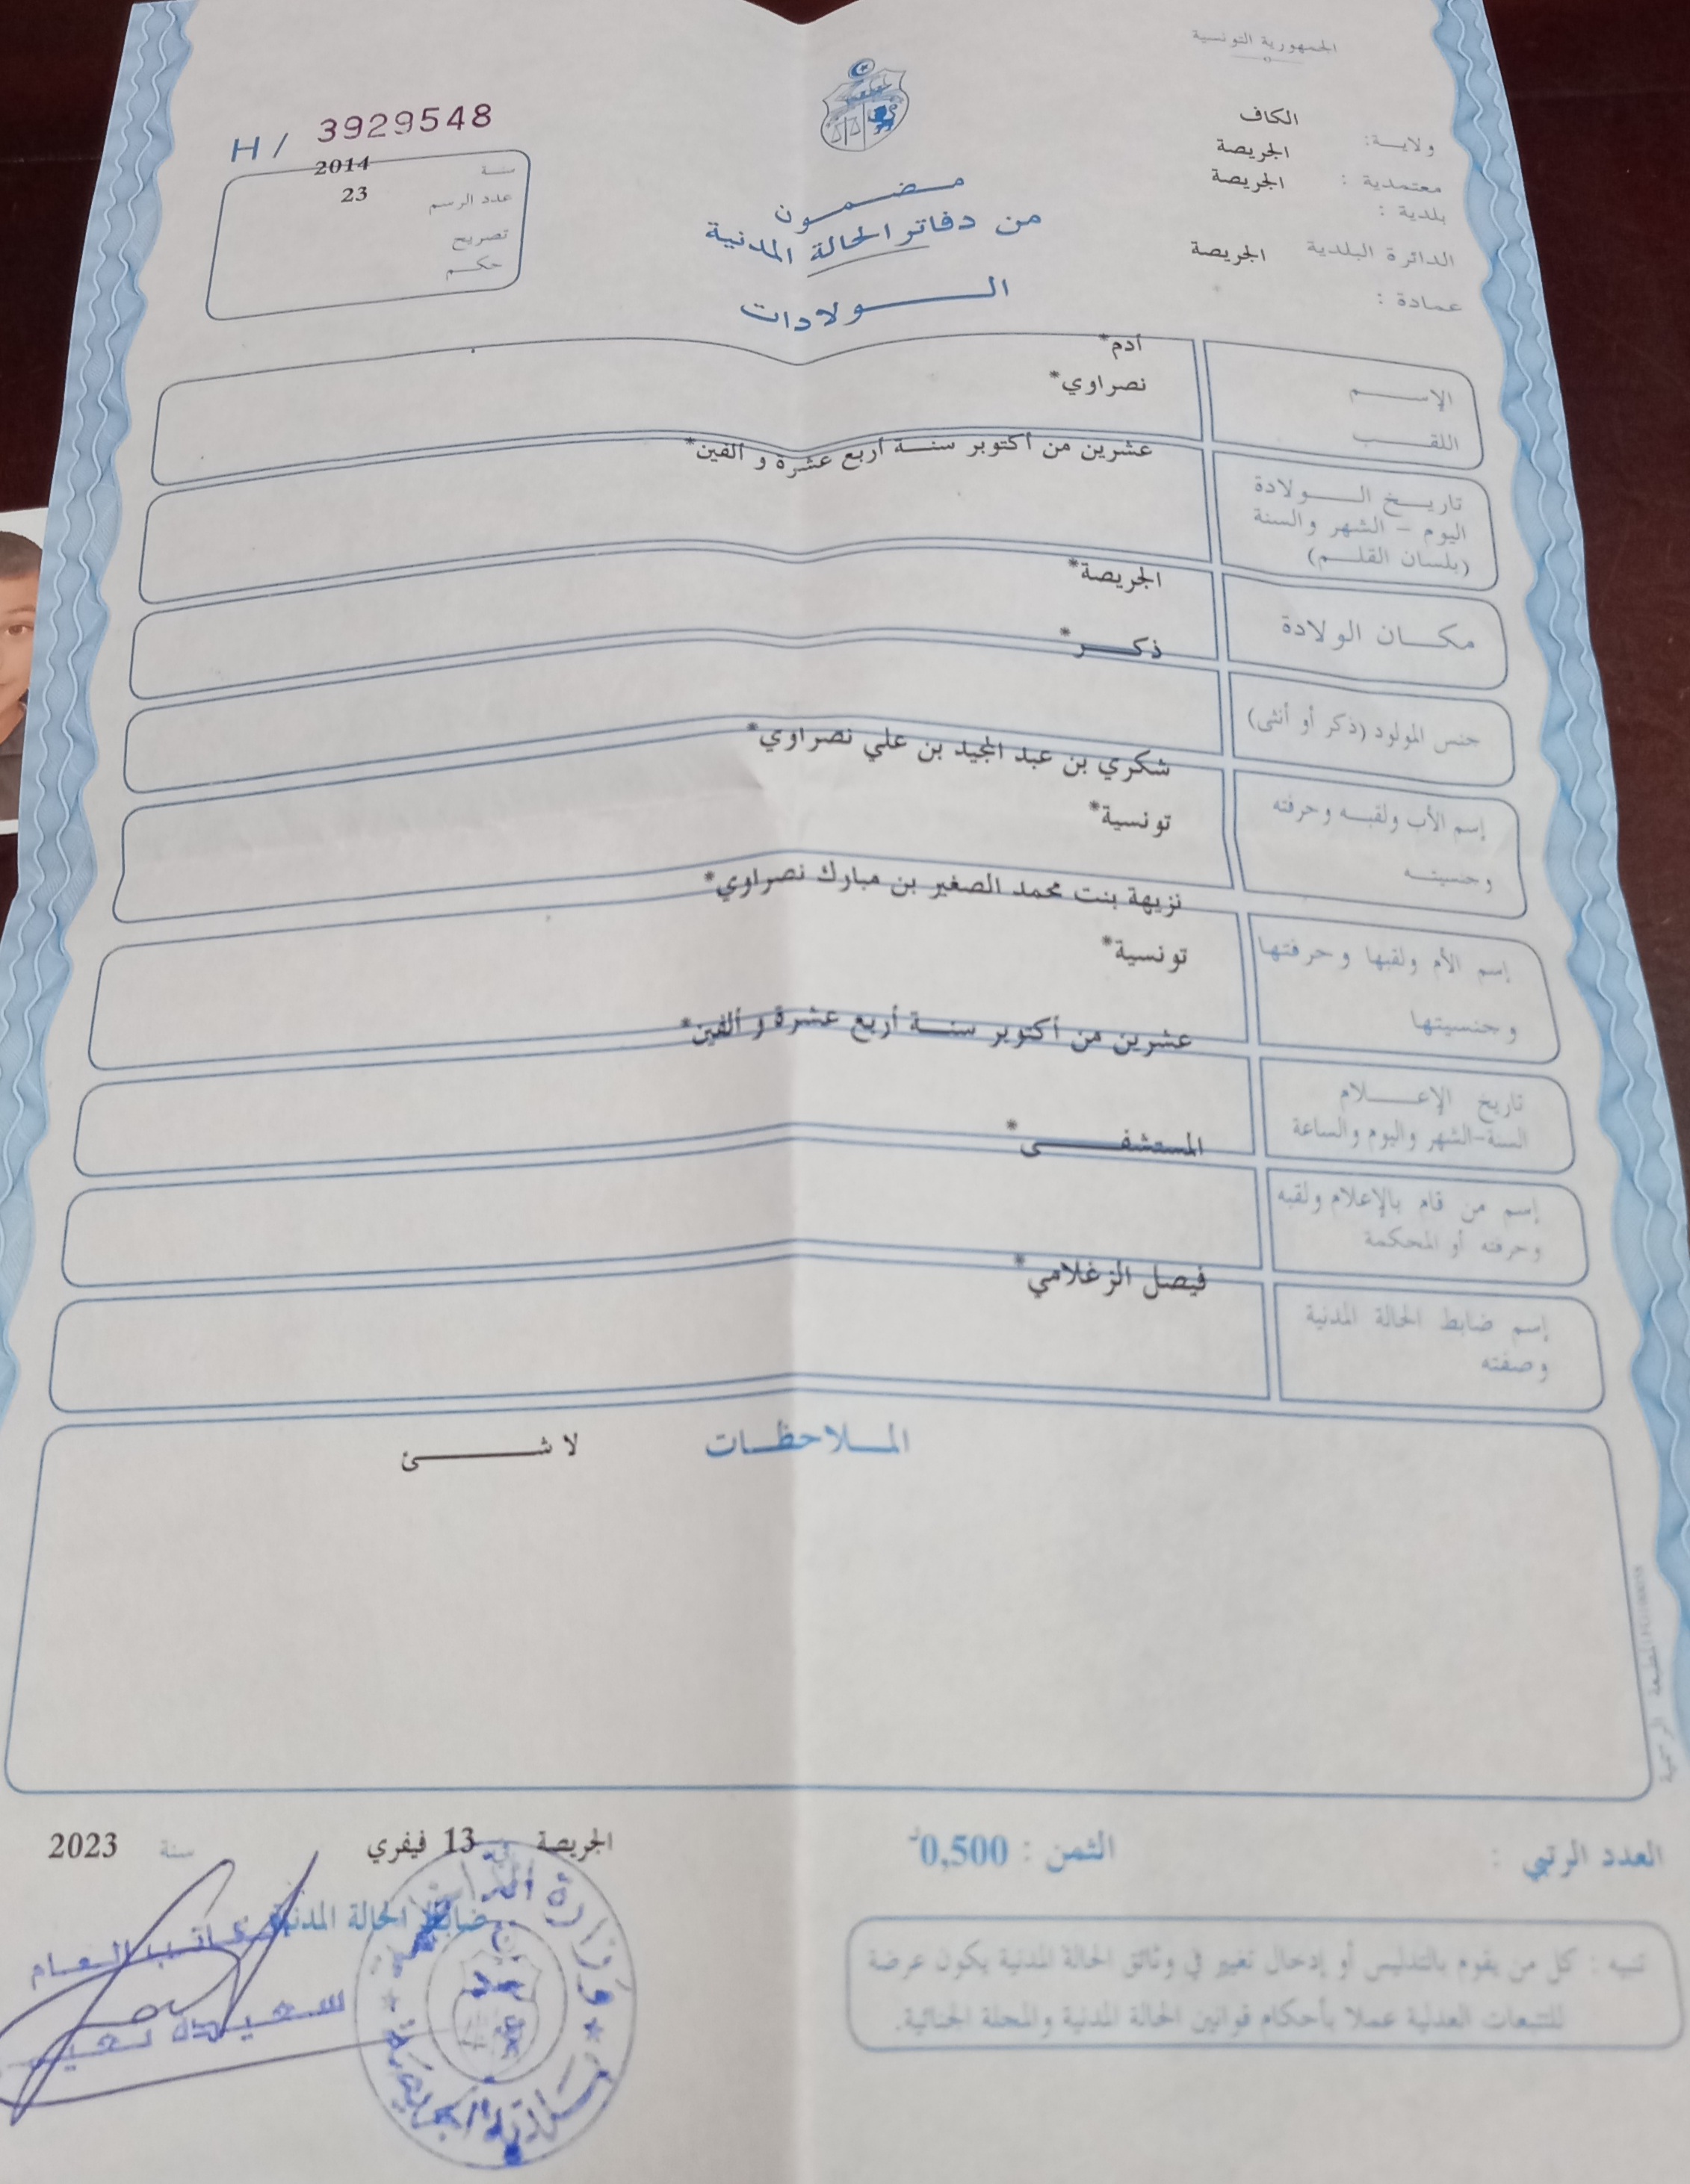 الجمهورية التونسية
ولاية: الكاف
معتمدية : الجريصة
بلدية : الجريصة
الدائرة البلدية الجريصة
عمادة :
مضمون
من دفاتر الحالة المدنية
الولادات
H / 3929548
سنة 2014
عدد الرسم 23
تصريح
حكم
الإسم أدم*
اللقب نصراوي*
تاريخ الولادة
اليوم - الشهر والسنة
(بلسان القلم)
عشرين من أكتوبر سنة أربع عشرة و ألفين*
مكان الولادة الجريصة*
جنس المولود (ذكر أو أنثى) ذكر*
إسم الأب ولقبه وحرفته
وجنسيته
شكري بن عبد المجيد بن علي نصراوي*
تونسية*
إسم الأم ولقبها وحرفتها
وجنسيتها
نزيهة بنت محمد الصغير بن مبارك نصراوي*
تونسية*
تاريخ الإعلام
السنة-الشهر واليوم والساعة
عشرين من أكتوبر سنة أربع عشرة و ألفين*
إسم من قام بالإعلام ولقبه
وحرفته أو المحكمة
المستشفى*
إسم ضابط الحالة المدنية
وصفته
فيصل الزغلامي*
الملاحظات
لا شئ
العدد الرتبي :
الثمن : 0,500د
الجريصة في 13 فيفري سنة 2023
ضابط الحالة المدنية
الكاتب العام
سعيدة
وزارة الداخلية
بلدية الجريصة
تنبيه : كل من يقوم بالتدليس أو إدخال تغيير في وثائق الحالة المدنية يكون عرضة
للتتبعات العدلية عملا بأحكام قوانين الحالة المدنية والمجلة الجنائية.
المطبعة الرسمية